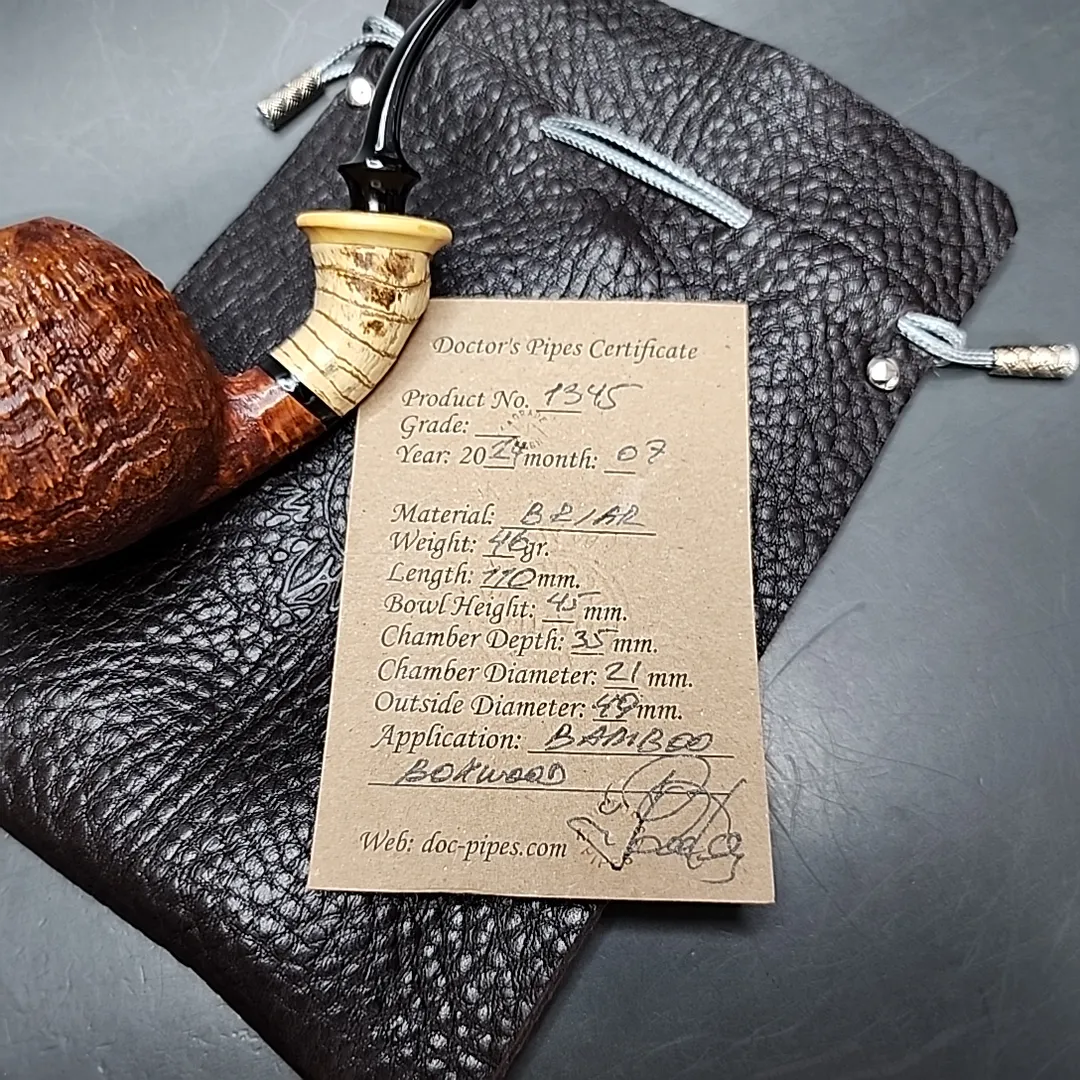 Doctor's Pipes Certificate
Product No. 1345
Grade:
Year: 2024 month: 07
Material: BRIAR
Weight: 46 gr.
Length: 110 mm.
Bowl Height: 45 mm.
Chamber Depth: 35 mm.
Chamber Diameter: 21 mm.
Outside Diameter: 49 mm.
Application: BAMBOO
BOXWOOD
Web: doc-pipes.com